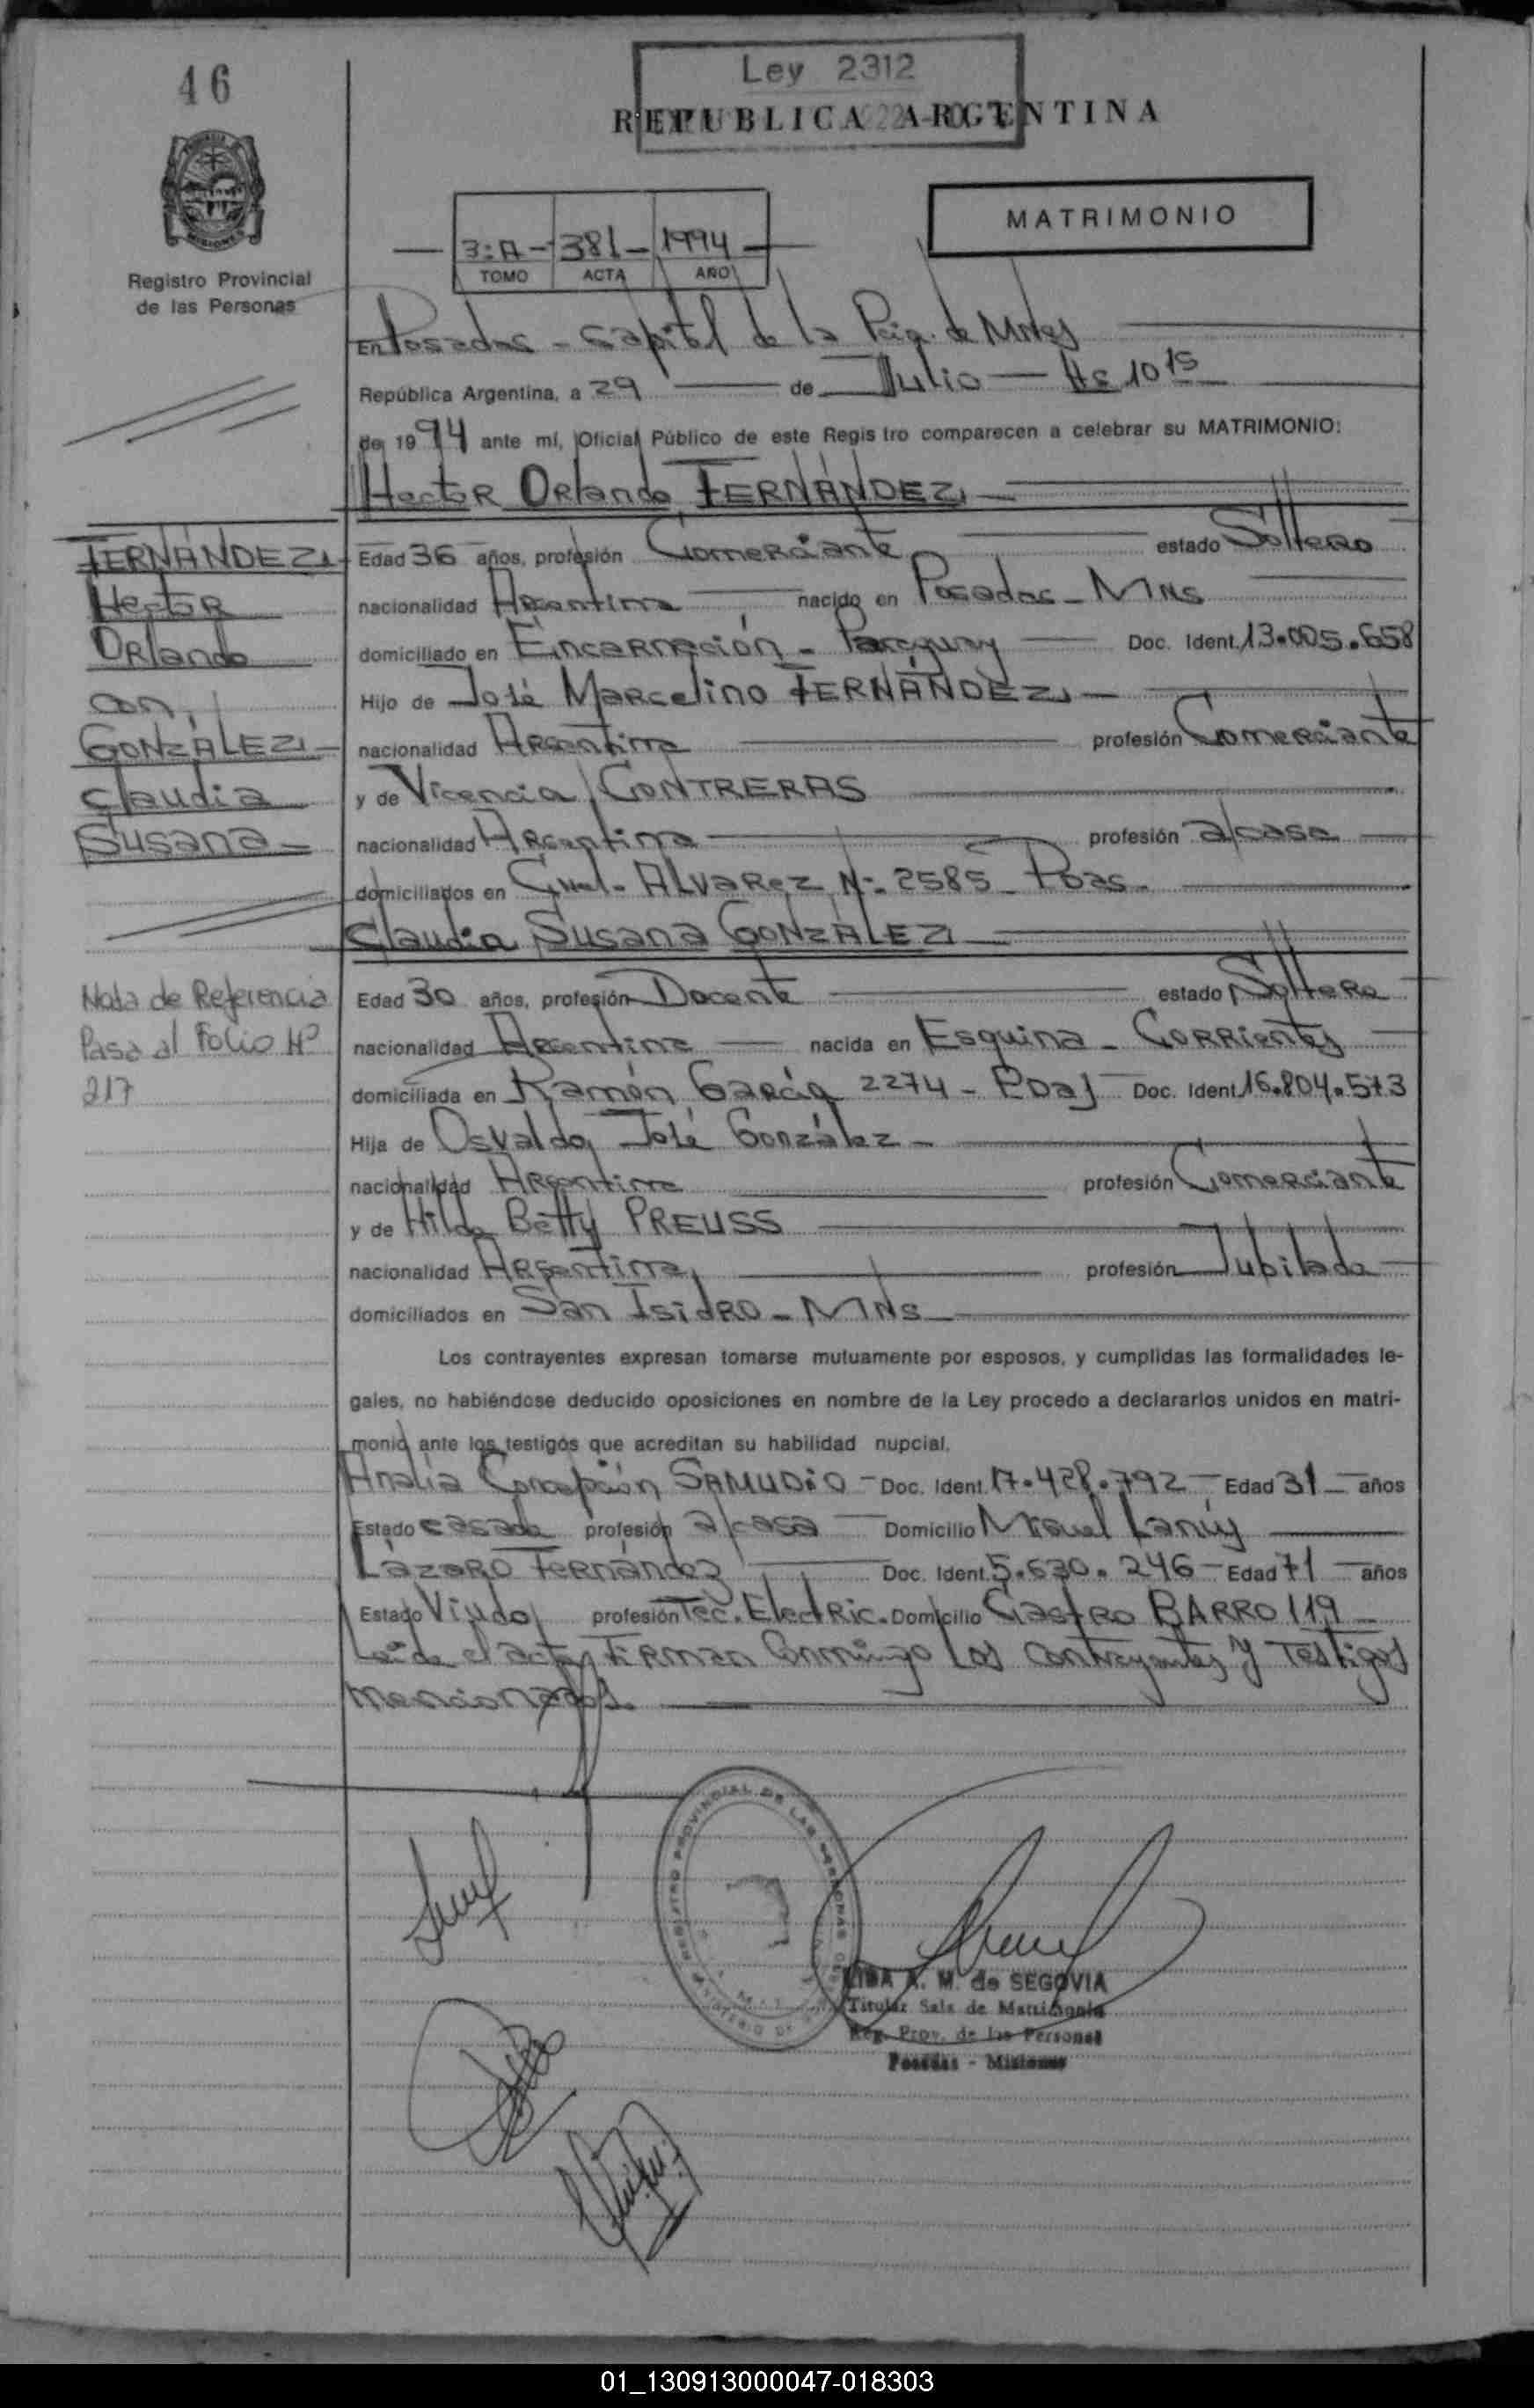 46
Ley 2312
REPUBLICA ARGENTINA
MATRIMONIO
3:A - 381 - 1994
TOMO ACTA AÑO
Registro Provincial
de las Personas
En Posadas - Capital de la Pcia. de Mnes
República Argentina, a 29 de Julio Hs 10 15
de 1994 ante mí, Oficial Público de este Registro comparecen a celebrar su MATRIMONIO:
Hector Orlando FERNÁNDEZ
FERNÁNDEZ
Hector
Orlando
con
GONZÁLEZ
Claudia
Susana
Edad 36 años, profesión Comerciante estado Soltero
nacionalidad Argentina nacido en Posadas - Mns
domiciliado en Encarnación - Paraguay Doc. Ident. 13.005.658
Hijo de José Marcelino FERNÁNDEZ
nacionalidad Argentina profesión Comerciante
y de Vicencia CONTRERAS
nacionalidad Argentina profesión a/casa
domiciliados en Gnel. ALVAREZ N:- 2585 - Pdas.
Claudia Susana GONZÁLEZ
Nota de Referencia
Pasa al Folio Nº
217
Edad 30 años, profesión Docente estado Soltera
nacionalidad Argentina nacida en Esquina - Corrientes
domiciliada en Ramón García 2274 - Pdas Doc. Ident. 16.804.573
Hija de Osvaldo José González
nacionalidad Argentina profesión Comerciante
y de Hilda Betty PREUSS
nacionalidad Argentina profesión Jubilada
domiciliados en San Isidro - Mns
Los contrayentes expresan tomarse mutuamente por esposos, y cumplidas las formalidades le-
gales, no habiéndose deducido oposiciones en nombre de la Ley procedo a declararlos unidos en matri-
monio ante los testigos que acreditan su habilidad nupcial.
Analia Concepción SAMUDIO - Doc. Ident. 17.428.792 - Edad 31 años
Estado casada profesión a/casa Domicilio Miguel Lanús
Lázaro Fernández Doc. Ident. 5.630.246 - Edad 71 años
Estado Viudo profesión Tec. Electric. Domicilio Castro BARRO 119
Leída el acta, Firman Conmingo Los Contrayentes y Testigos
mencionados.
REGISTRO PROVINCIAL DE LAS PERSONAS
LIDA A. M. de SEGOVIA
Titular Sala de Matrimonio
Reg. Prov. de las Personas
Posadas - Misiones
01_130913000047-018303